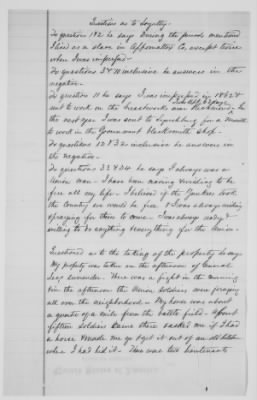 Questions as to Loyalty.
To questions 1 & 2 he says During the period mentioned
I lived as a slave in Appomattox Co, except twice
when I was impressed
To questions 3 & 11 inclusive he answers in the
negative.
To question 11 he says I was impressed in 1862 &
sent to work on the breastworks near Richmond. In
the next year I was sent to Lynchburg for a month
to work in the Government blacksmith shop.
To questions 12 & 32 inclusive he answers
in the negative.
To questions 33 & 34 he says I always was a
Union man. I have been moving needing to be
free all my life. I believed if the Yankees took
the country we would be free & I was always willing
& praying for them to come. I was always ready &
willing to do anything & everything for the Union.
Questioned as to the taking of the property he says
My property was taken on the afternoon of General
Lee's surrender. There was a fight in the morning
in the afternoon the Union soldiers were foraging
all over the neighborhood. My house was about
a quarter of a mile from the battle field. About
fifteen soldiers came there & asked me if I had
a horse & made me go & get it out of an old kitchen
where I had hid it. There was two lieutenants